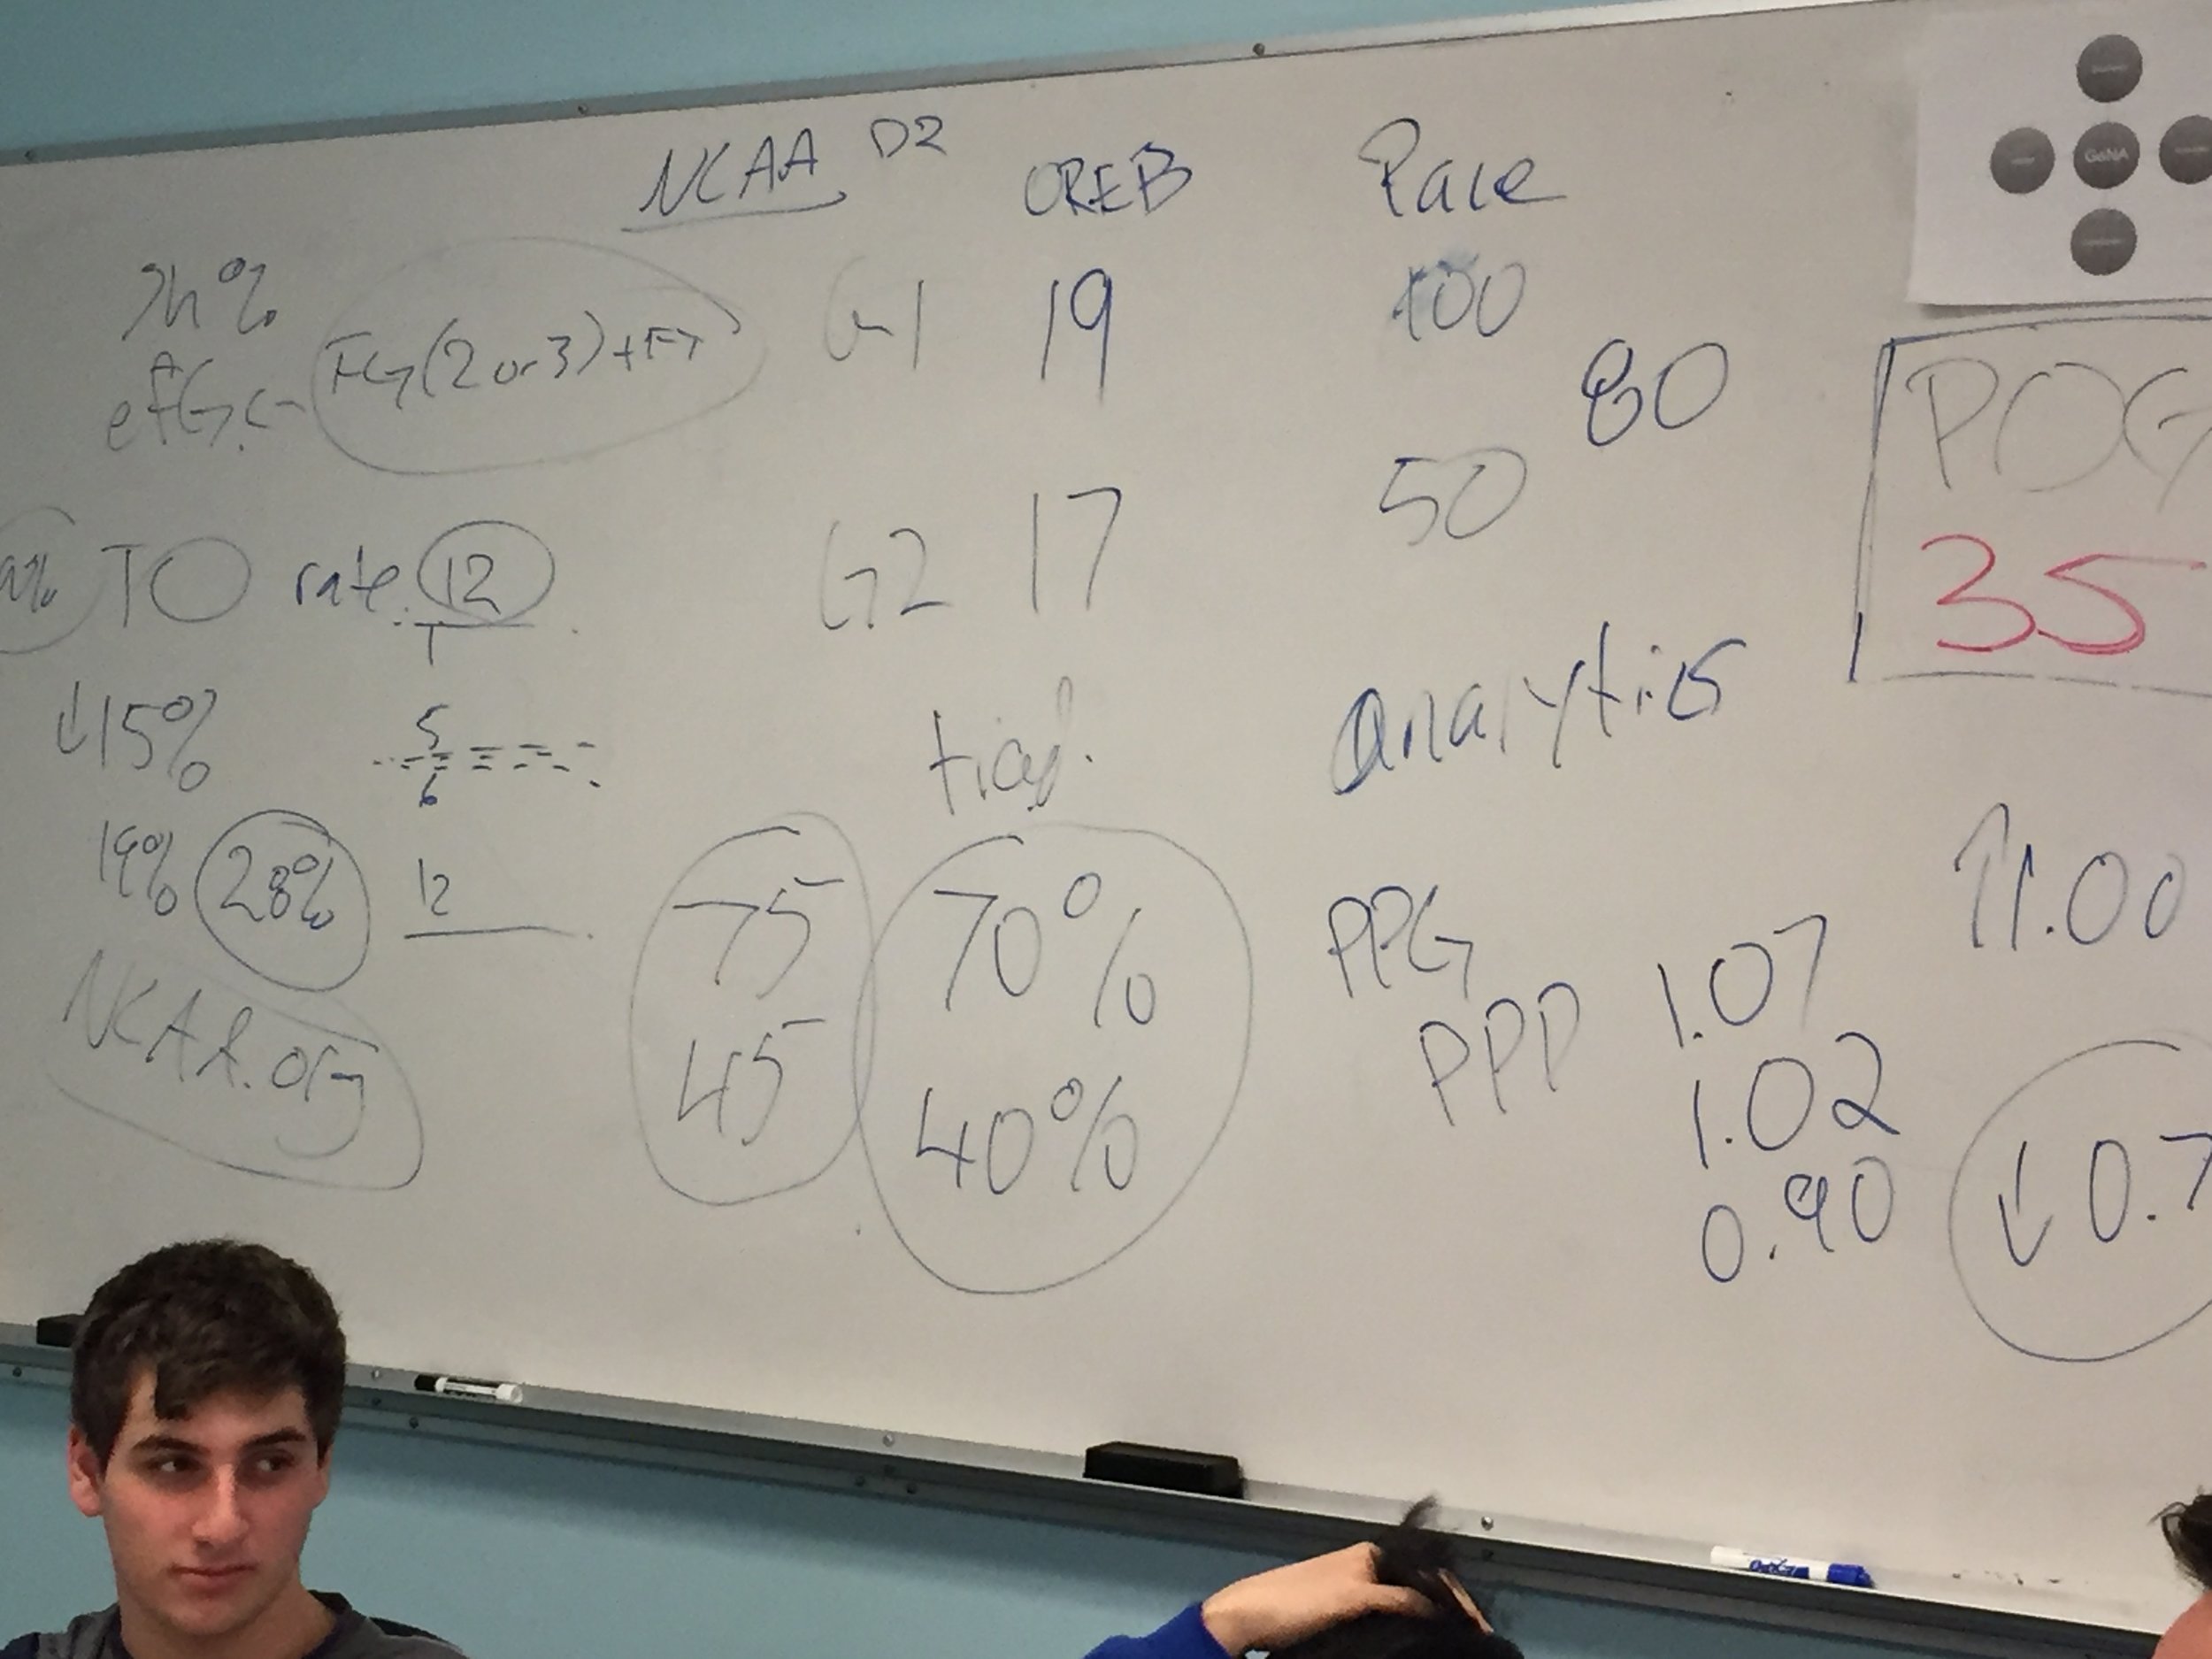 NCAA D2 OREB Pace
G1 19 100
80
eFG FG(2 or 3) + FT
G2 17 50
TO rate 12
T
↓15%
5
6
19% 28% 12
NCAA.org
trad.
75 70%
45 40%
Analytics
PPG
PPP 1.07
1.02
0.90
↑1.00
↓0.7
POG
35
GeNA